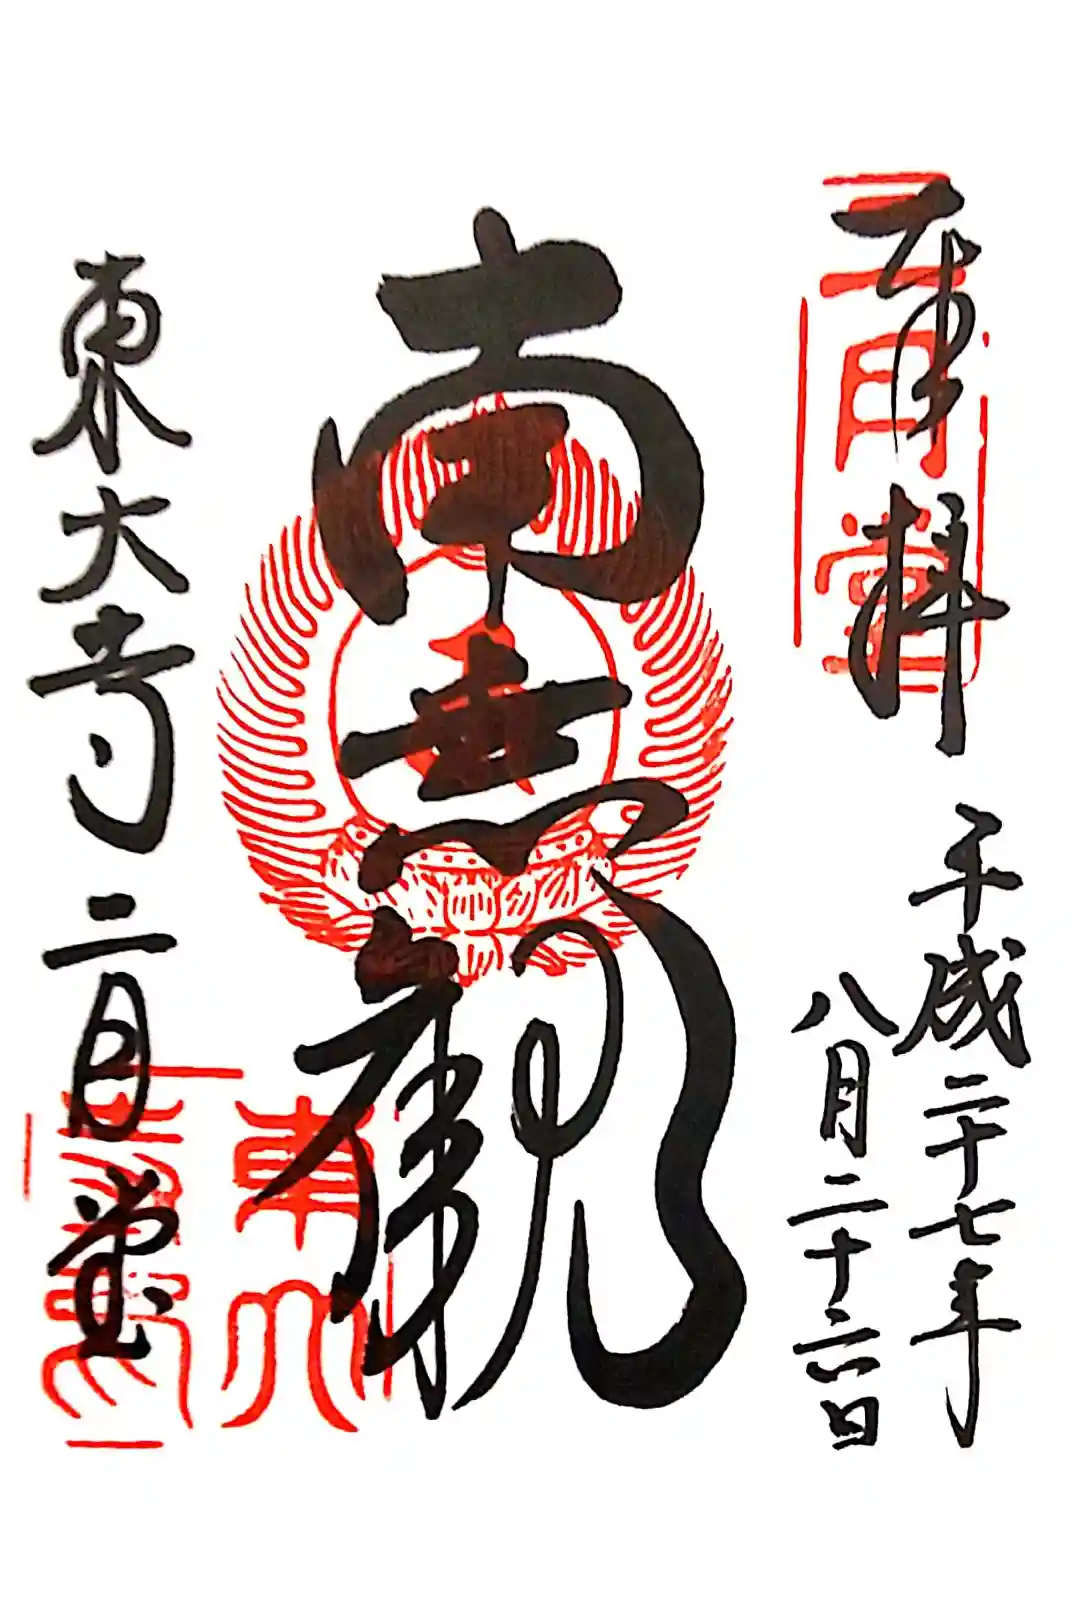 奉拝
二月堂
平成二十七年
八月二十六日
南無観
東大寺二月堂
東大